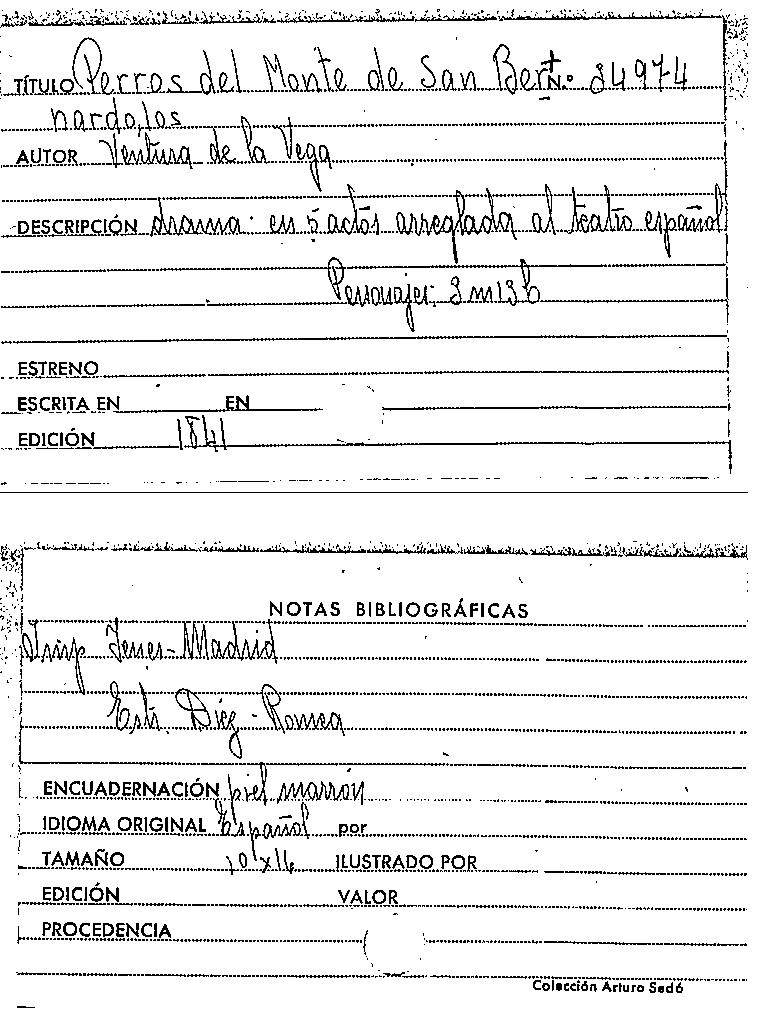 TÍTULO Perros del Monte de San Ber- N.º 34974
nardo, los
AUTOR Ventura de la Vega
DESCRIPCIÓN drama en 5 actos arreglada al teatro español
Personajes: 3 m 13 h
ESTRENO
ESCRITA EN EN
EDICIÓN 1841
NOTAS BIBLIOGRÁFICAS
Imp Yenes-Madrid
Estr. Diez-Romea
ENCUADERNACIÓN piel marrón
IDIOMA ORIGINAL Español por
TAMAÑO ILUSTRADO POR
EDICIÓN VALOR
PROCEDENCIA
Colección Arturo Sedó